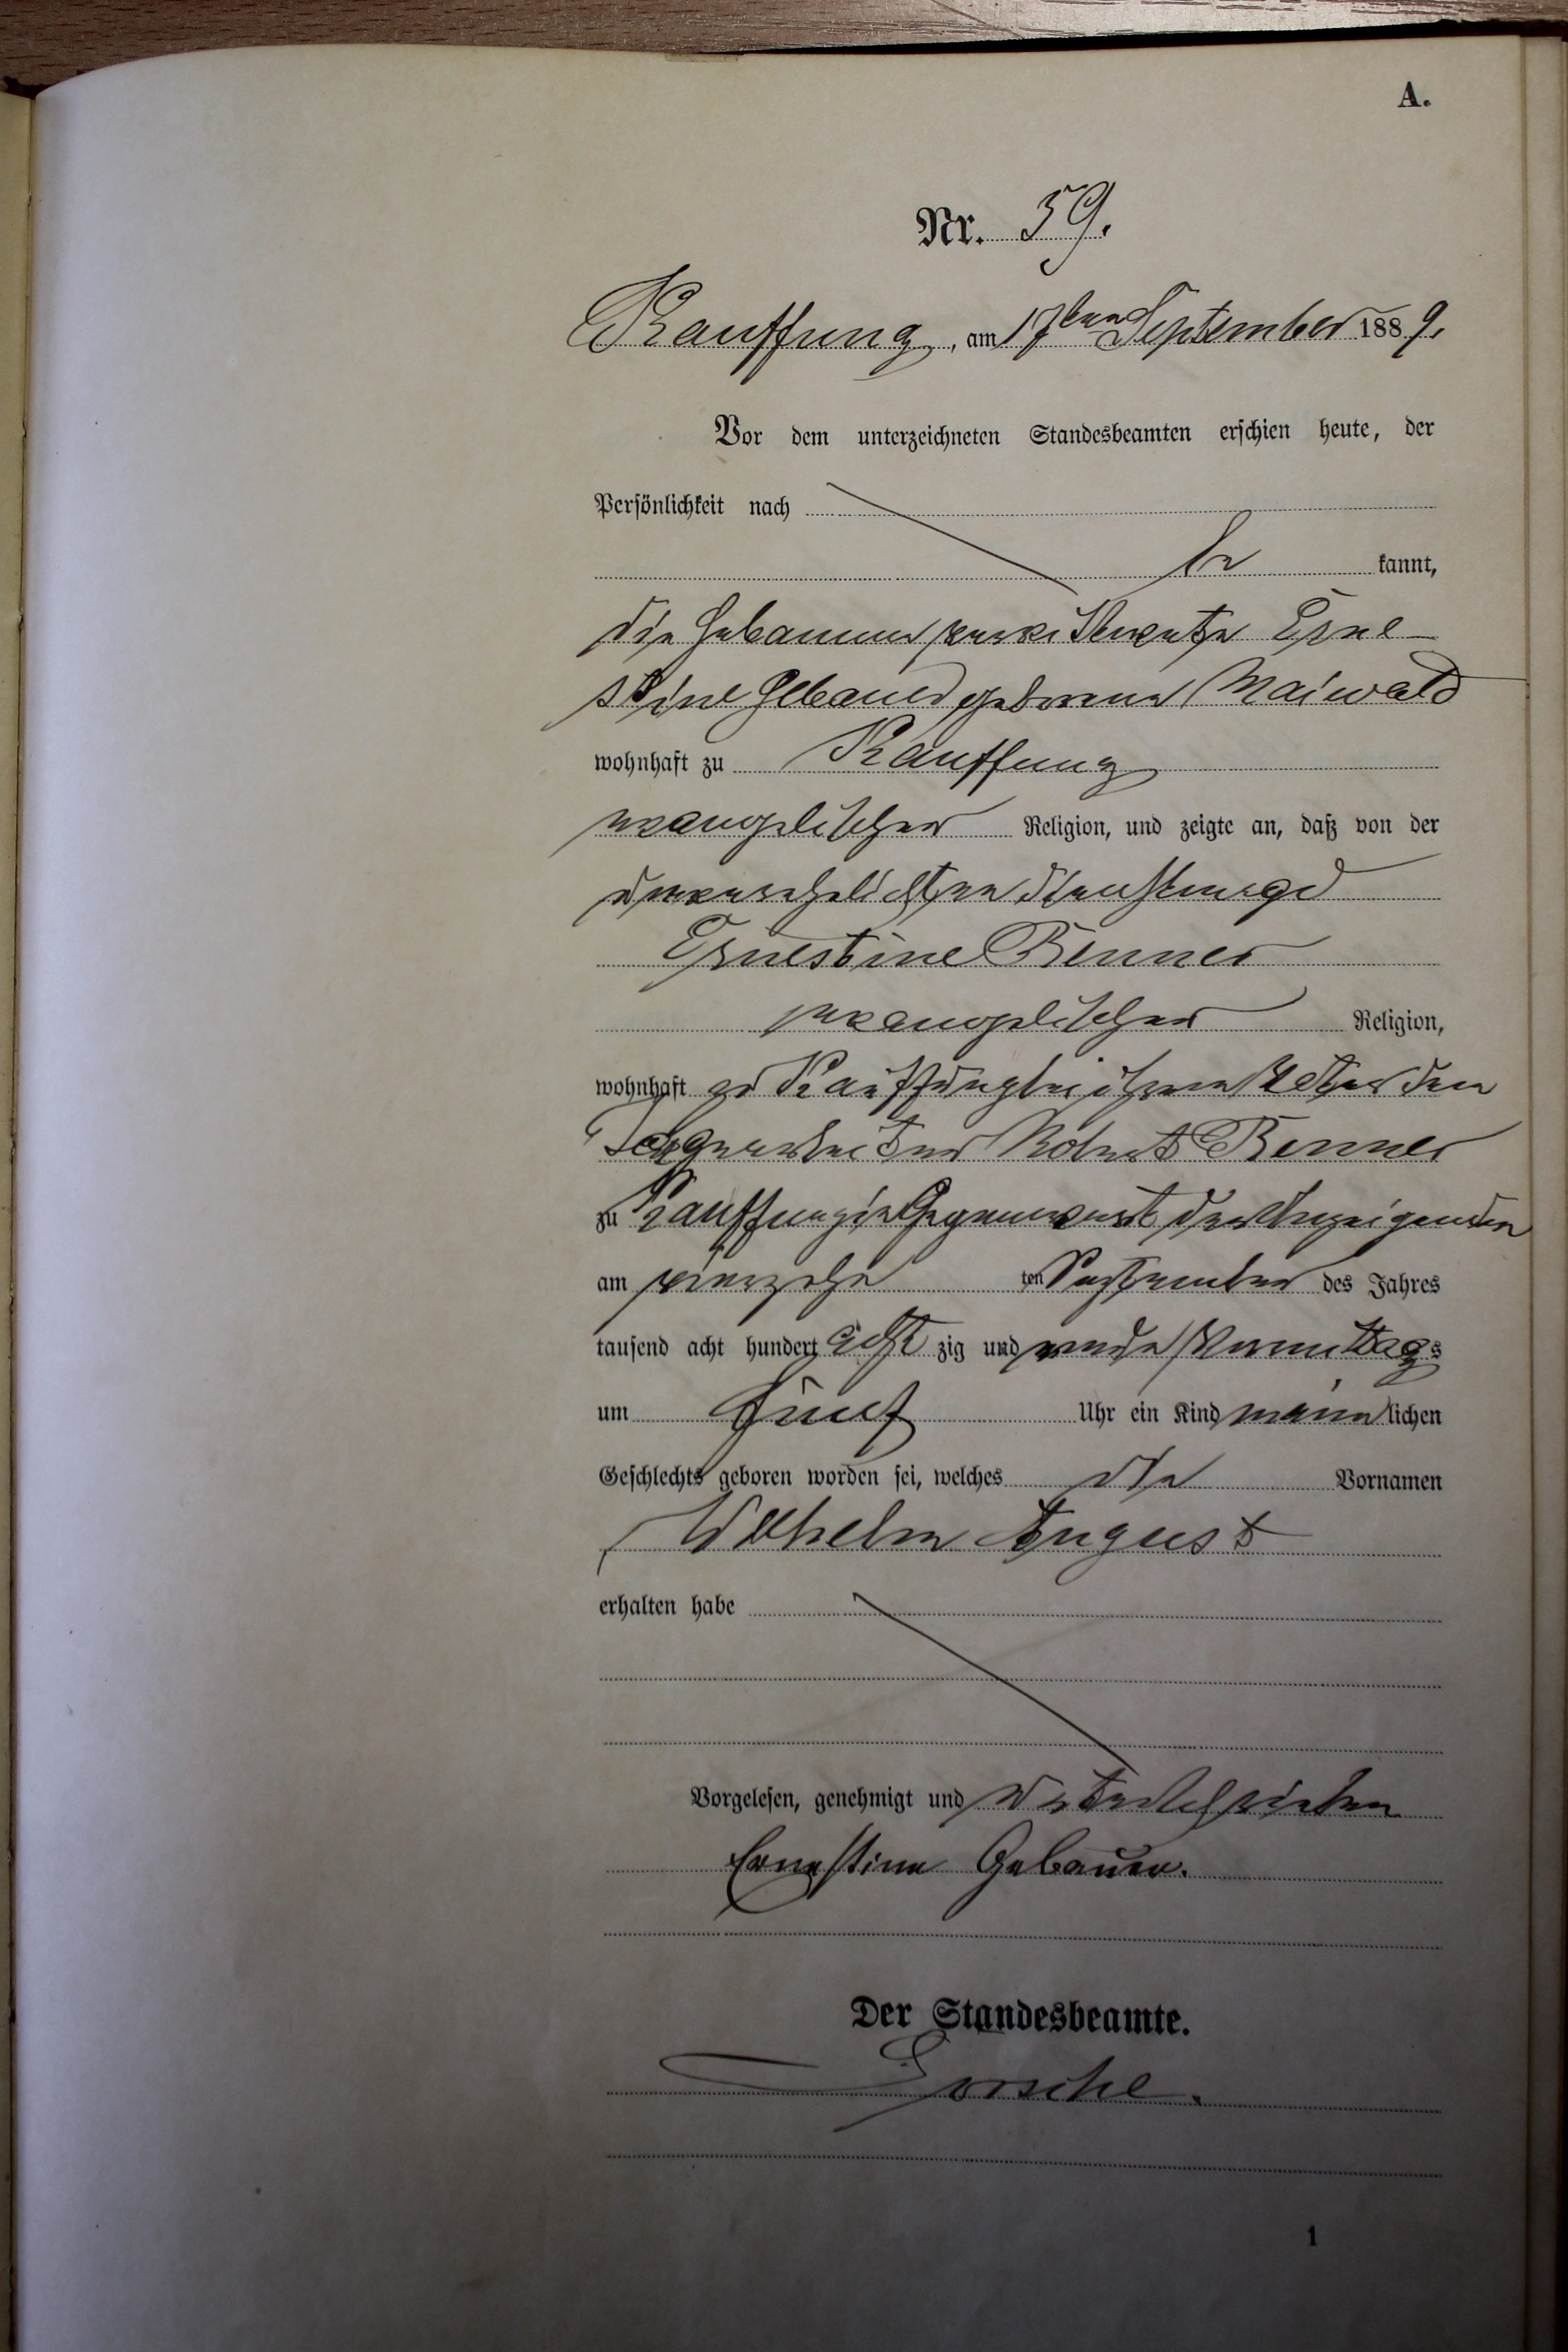 A.
Nr. 59.
Kauffung, am 17ten September 1889.
Vor dem unterzeichneten Standesbeamten erschien heute, der
Persönlichkeit nach
be kannt,
die Hebamme Erne-
stine Gebauer geborene Maiwald
wohnhaft zu Kauffung
evangelischer Religion, und zeigte an, daß von der
unverehelichten Dienstmagd
Ernestine Renner
evangelischer Religion,
wohnhaft zu Kauffung bei ihrem Vater dem
Robert Renner
zu Kauffung in Gegenwart der Anzeigenden
am vierzehn ten September des Jahres
tausend acht hundert acht zig und neun Vormittags
um fünf Uhr ein Kind männlichen
Geschlechts geboren worden sei, welches die Vornamen
Wilhelm August
erhalten habe
Vorgelesen, genehmigt und unterschrieben
Ernestine Gebauer.
Der Standesbeamte.
1